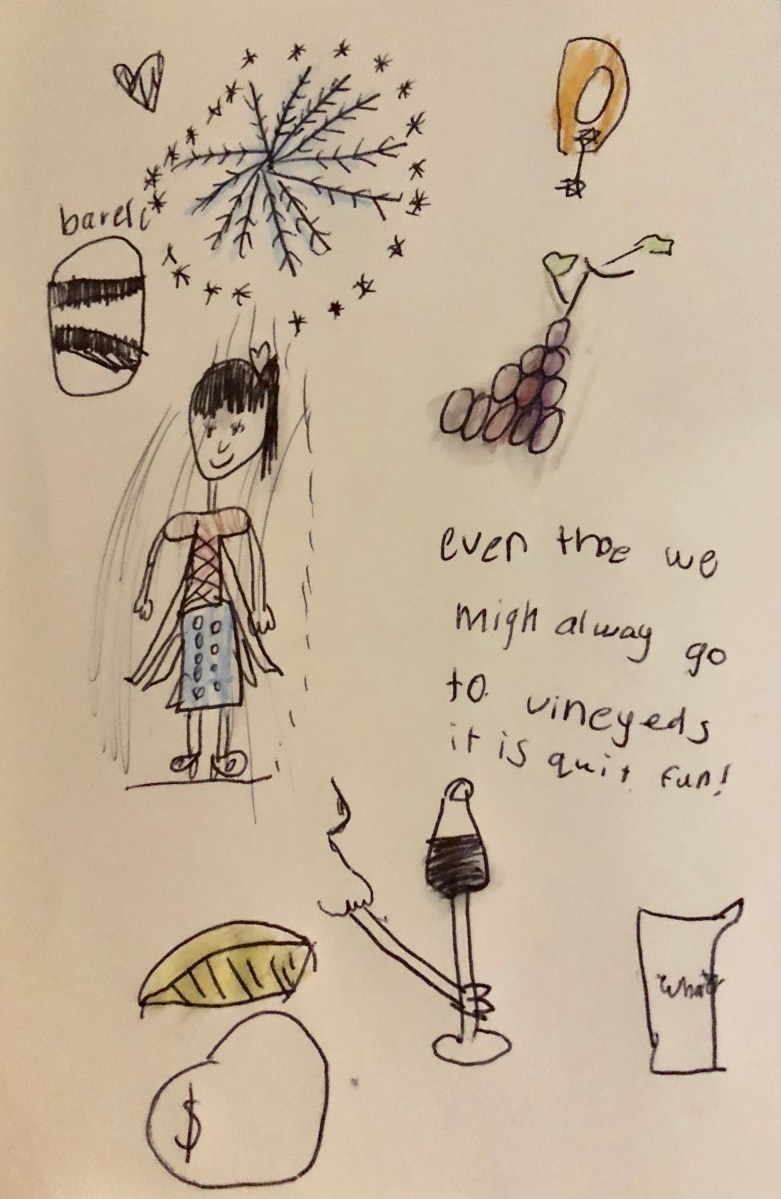 barell
even thoe we
migh alway go
to vineyeds
it is quit fun!
$